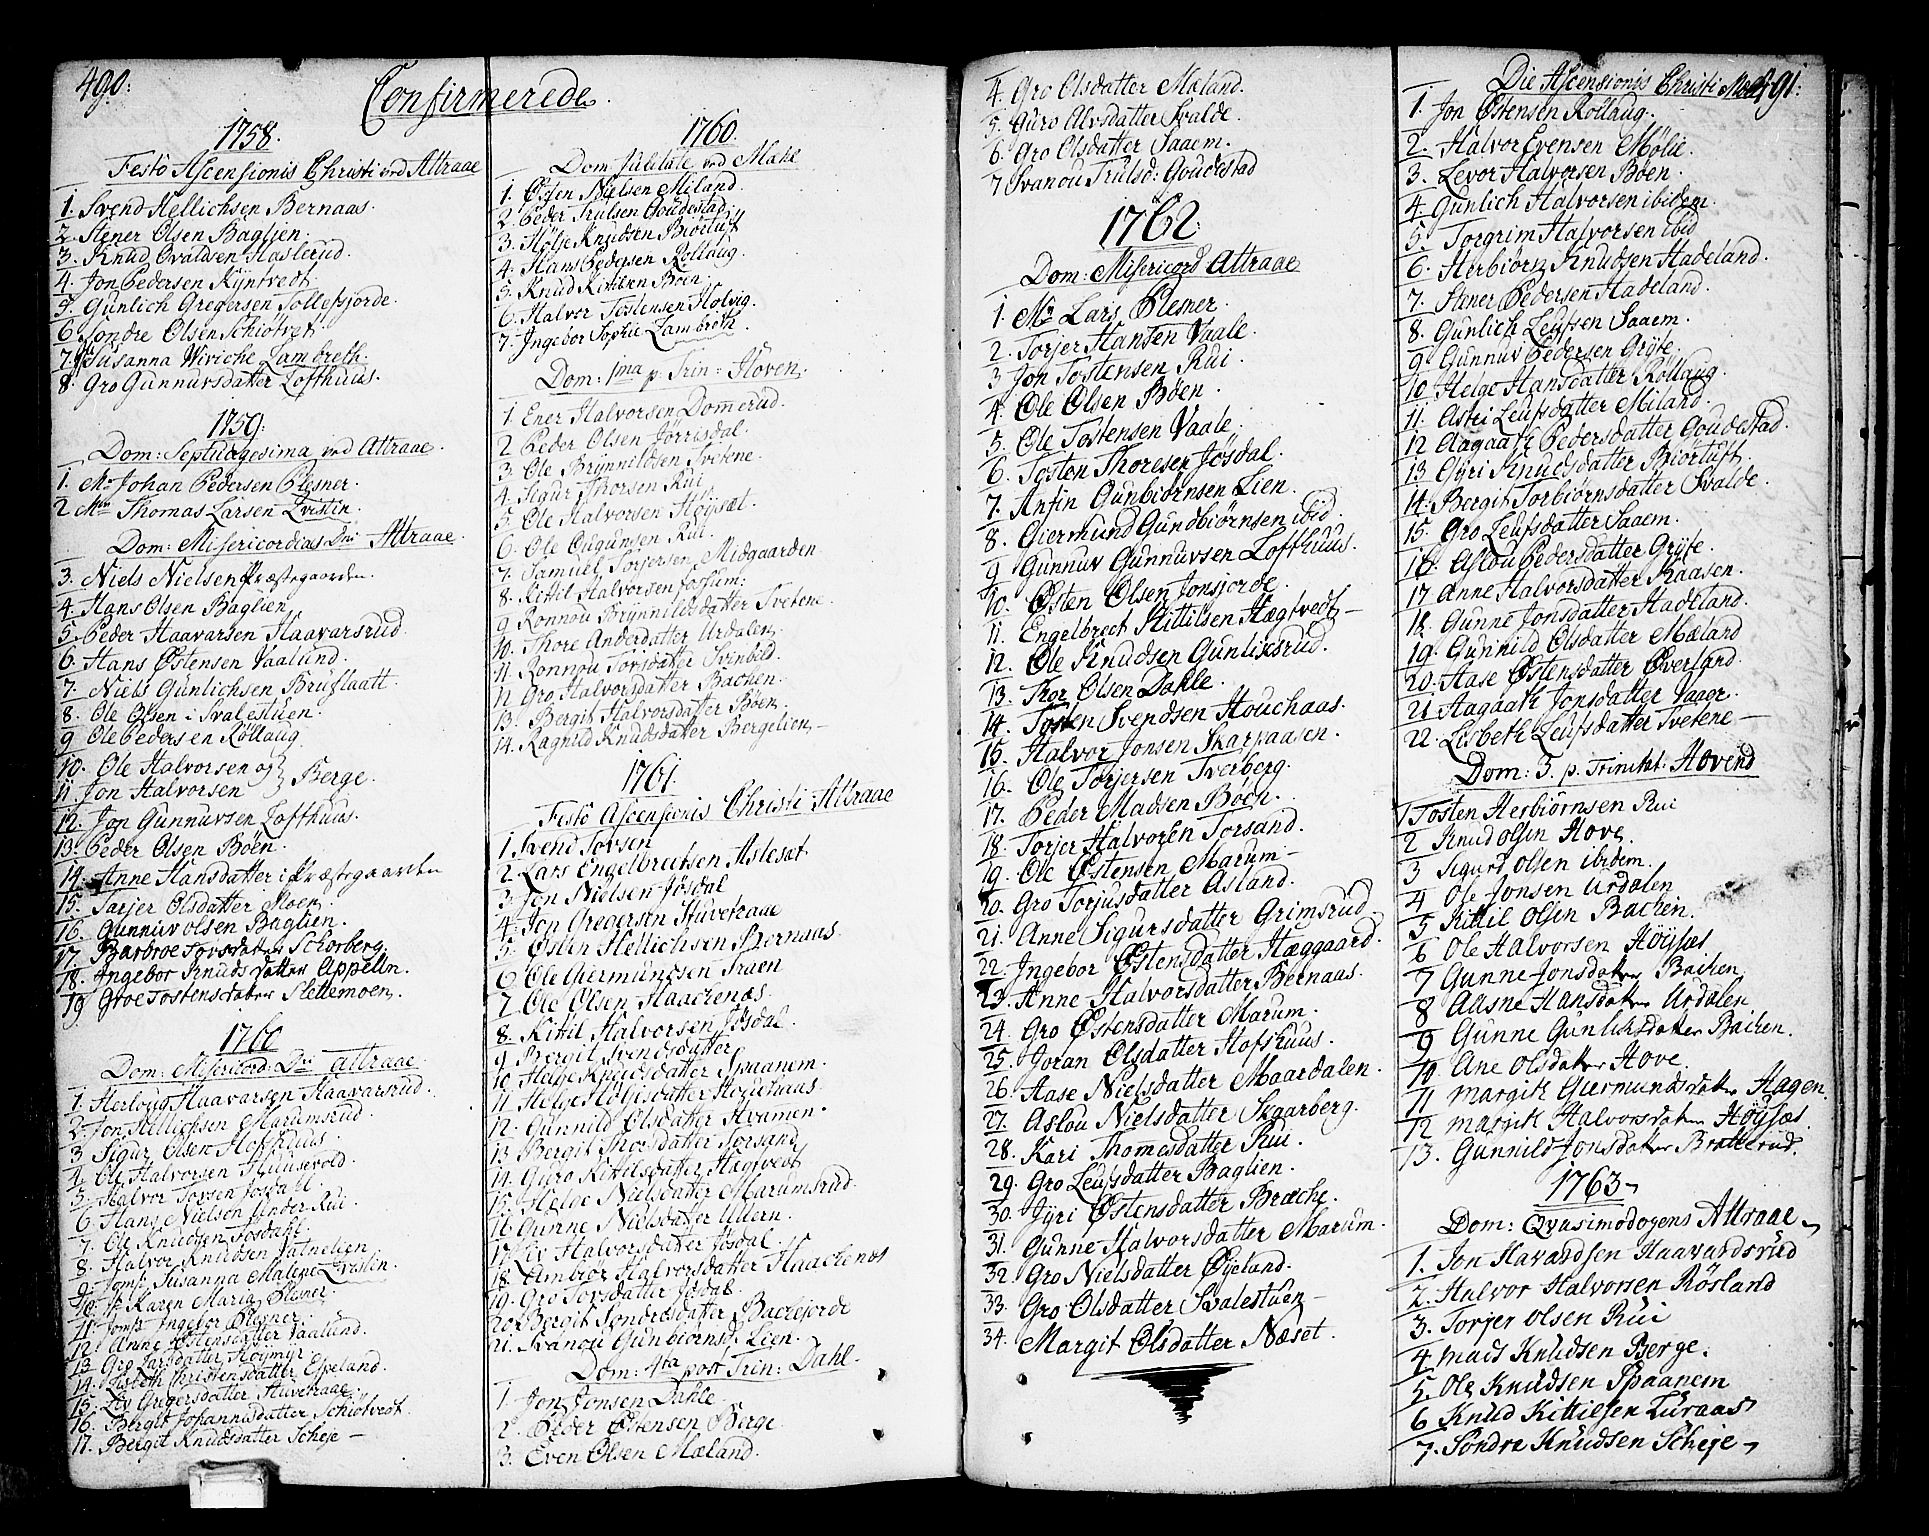 490.
Confirmerede
1758.
Festo Ascensionis Christi ved Attraae
1. Svend Hellichsen Bernaas.
2. Stener Olsen Baglien.
3. Knud Ovaldsen Haslerud.
4. Jon Pedersen Kijntvedt
5. Gunlich Gregersen Tollefsjorde.
6 Sondre Olsen Schiotvet
7. Susanna Wiviche Lambreth.
8. Gro Gunnuvsdatter Lofthuus.
1759.
Dom: Septuagesima ved Attraae.
1. Mr Johan Pedersen Plesner.
2 Mr Thomas Larsen Qvistin.
Dom: Misericordias Dni Attraae.
3. Niels Nielsen Præstegaarden.
4. Hans Olsen Baglien
5. Peder Haavarsen Haavarsrud
6. Hans Østensen Vaalund.
7. Niels Gunlichsen Bruflaatt.
8. Ole Olsen i Svalestuen.
9 Ole Pedersen Rollaug
10. Ole Halvorsen og
11 Jon Halvorsen } Berge.
12. Jon Gunnuvsen Lofthuus.
13. Peder Olsen Böen.
14. Anne Hansdatter i Præstegaarden
15. Tarjer Olsdatter Moen.
16. Gunnuv olsen Baglien.
17 Barbroe Torsdatter Schorberg.
18. Ingebor Knuds datter Appelln.
19 Groe Tostensdatter Slettemoen.
1760
Dom: Misericord: Dni Attraae
1. Herloug Haavarsen Haavarsrud.
2. Jon Hellichsen Marumsrud
3 Sigur Olsen Hofshuus
4. Ole Halvorsen
5. Halvor Torsen Josdahl
6. Hans Nielson Under Rui.
7. Ole Knudsen Josdahl
8. Halvor Knudsen
9. Jomf. Susanna Malene Qvistin.
10. Jf Karen Maria Plesner.
11. Jomf Ingebor Plesner.
12. Anne Østensdatter Vaalund.
13 Gro Larsdatter Höjmijr
14. Lisbeth Christensdatter Espeland.
15. Liv Gregersdatter Huvetraae
16. Bergit Johannisdatter Schiotvedt.
17. Bergit Knudsdatter Scheje –
1760.
Dom Jubilate ved Mahl
1. Østen Nielsen Miland.
2. Peder Trulsen Goudestad.
3. Holje Knudsen Biortuft
4. Hans Pedersen Rollaug.
5. Knud Kittilsen Böen
6. Halvor Tostensen Holvig.
7. Ingebor Sophia Lambreth.
Dom: 1ma p: Trin: Hoven.
1. Ener Halvorsen Dommerud.
2 Peder Olsen Jörrisdal.
3. Ole Brijnnildsen Svetene.
4. Sigur Thorsen Rui
5. Ole Halvorsen Höysæt.
6. Ole Ougunsen Rui.
7. Samuel Torjersen Midgaarden
8. Kittil Halvorsen Fossum:
9 Ronnou Brijnnildsdatter Svetene.
10. Thore Andersdatter Urdalen
11. Ronnou Torsdatter Svinbild
12 Gro Halvorsdatter Bachen.
13. Bergit Halvorsdatter Böen.
14. Ragnild Knudsdatter Bergelien –
1761.
Festo Ascensionis Christi Attraae
1. Svend Torsen
2. Lars Engelbrectsen Aslesæt
3. Jon Nielsen Jösdal
4. Jon Gregersen Huvetraae
5. Østen Hellichsen Bernaas.
6 Ole Giermundsen Traen
7. Ole Olsen Haachenæs.
8. Kittil Halvorsen Jösdal.
9. Bergit Svendsdatter
10 Helge Knudsdatter Spaanem.
11 Helge Holjesdatter Houchaas
12. Gunnild Olsdatter Hvamen.
13 Bergit Thorsdatter Torsand
14 Guro Kittilsdatter Hægtvedt
15. Helge Nielsdatter Marumsrud.
16 Gunne Nielsdatter Ullern.
17 Liv Halvorsdatter Jösdal.
18 Ambior Halvorsdatter Haachenæs
19. Gro Torsdatter Jösdal.
20 Bergit Sondresdatter Bachjorde
21. Svanou Gunbiornsd: Lien.
Dom: 4ta post Trin: Dahl.
1. Jon Jonsen Dahle
2. Peder Østensen Berge
3. Even Olsen Mæland.
4. Gro Olsdatter Mæland.
5. Guro Alvsdatter Svalde.
6. Gro Olsdatter Saaem.
7 Svanou Trulsd: Goudestad
1762
Dom: Misericord Attraae
1. Mr Lars Plesner.
2. Torjer Hansen Vaale.
3 Jon Tostensen Rui.
4. Ole Olsen Böen.
5. Ole Tostensen Vaale.
6. Tosten Thoresen Jösdal.
7. Anfin Gunbiørnsen Lien.
8. Giermund Gundbiørnsen ibid.
9 Gunnuv Gunnuvsen Lofthuus.
10. Østen Olsen Jonsjorde.
11. Engelbrect Kittilsen Hægtvedt –
12. Ole Knudsen Gunlixsrud.
13. Thor Olsen Dahle.
14. Tosten Svendsen Houchaas.
15. Halvor Jonsen Skarpaasen.
16. Ole Torjersen Tverberg.
17. Peder Madsen Böen.
18. Torjer Halvorsen Torsand.
19. Ole Østensen Marum –
20. Gro Torjusdatter Asland.
21. Anne Sigursdatter Grimsrud.
22. Ingebor Østensdatter Hæggaard.
23. Anne Halvorsdatter Bernaas.
24. Gro Østensdatter Marum.
25 Joran Olsdatter Hofshuus.
26. Aase Nielsdatter Maardalen.
27. Aslou Nielsdatter Skaarberg.
28. Kari Thomesdatter Rui.
29. Gro Leufsdatter Baglien.
30. Jÿri Østensdatter Bræche.
31. Gunne Halvorsdatter Marum.
32. Gro Nielsdatter Øyeland.
33. Gro Olsdatter Svalestuen –
34. Margit Olsdatter Næset.
491.
Die Ascensionis Christi Mæl
1. Jon Østensen Rollaug.
2. Halvor Evensen Mölie.
3. Levor Halvorsen Böen.
4 Gunlich Halvorsen ibidem.
5. Torgrim Halvorsen ibid
6. Herbiörn Knudsen Hadeland.
7. Stener Pedersen Hadeland.
8. Gunlich Leufsen Saaem.
9. Gunnuv Pedersen Grÿte.
10 Helge Hansdatter Rollaug.
11. Astri Leufsdatter Miland.
12 Aagaath Pedersdatter Goudestad.
13 Eÿri Knudsdatter Biörtuft.
14. Bergit Torbiörnsdatter Svalde.
15. Gro Leufsdatter Saaem.
16. Aslou Pedersdatter Grÿte.
17 Anne Halvorsdatter Kaasen.
18. Gunne Jonsdatter Hadeland.
19. Gunnild Olsdatter Mæland
20. Aase Østensdatter Øverland.
21 Aagaath Jonsdatter Vaaer.
22. Lisbeth Leufsdatter Svetene –
Dom: 3. p. Trinitat: Hovend
1 Tosten Herbiörnsen Rui
2 Knud olsen Hove
3 Sigurd olsen ibidem.
4 Ole Jonsen Urdalen
5 Kittil Olsen Bachen.
6 Ole Halvorsen Höÿsæt
7 Gunne Jonsdatter Bachen
8 Aasne Hansdatter Urdalen
9 Gunne Gunlichsdatter Bachen.
10 Ane Olsdatter Hove
11 Margith Giermundsdatter Hagen.
12 Margith Halvorsdatter Höÿsæt.
13. Gunnild Jonsdatter Brotterud.
1763
Dom: Qvasimodogens Attraae
1. Jon Havardsen Haavardsrud
2. Halvor Halvorsen Rösland
3. Torjer Olsen Rui
4 Mads Knudsen Berge.
5. Ole Knudsen Spaanem
6 Knud Kittilsen Luraas
7. Sondre Knudsen Scheje